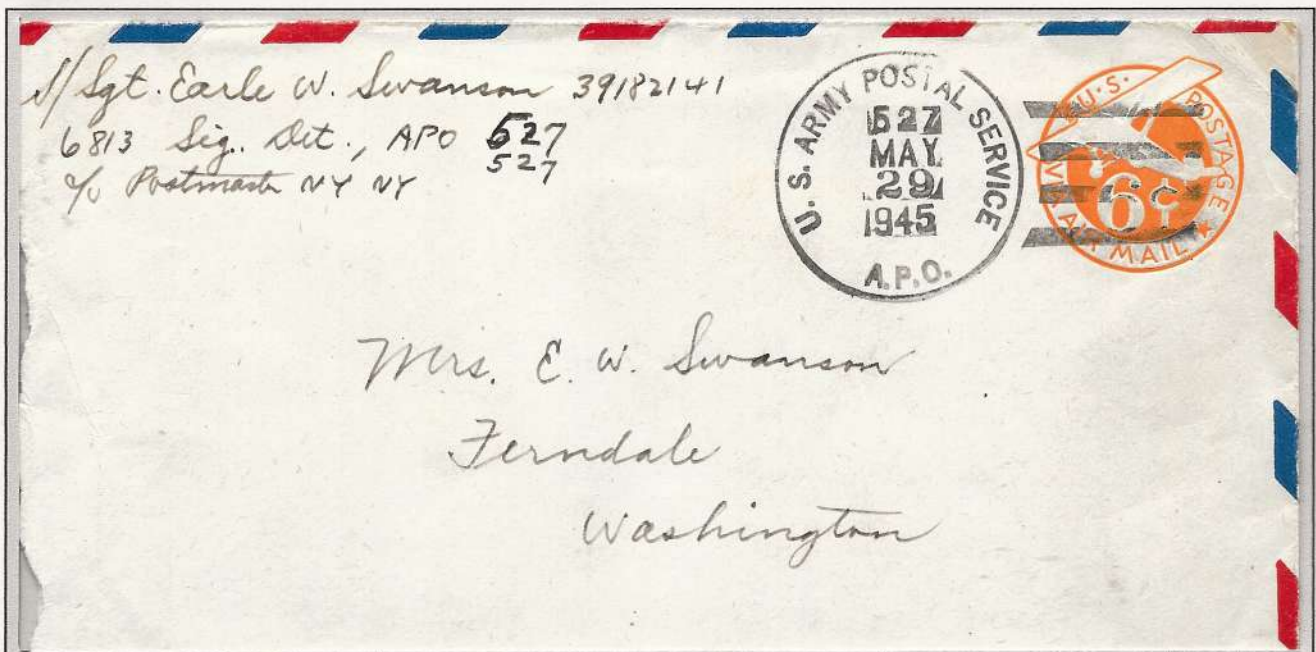 S/Sgt. Earle W. Swanson 39182141
6813 Sig. Det., APO 527
527
c/o Postmaster NY NY
U. S. ARMY POSTAL SERVICE
527
MAY
29
1945
A.P.O.
U.S. POSTAGE
VIA AIR MAIL
6¢
Mrs. E. W. Swanson
Ferndale
Washington